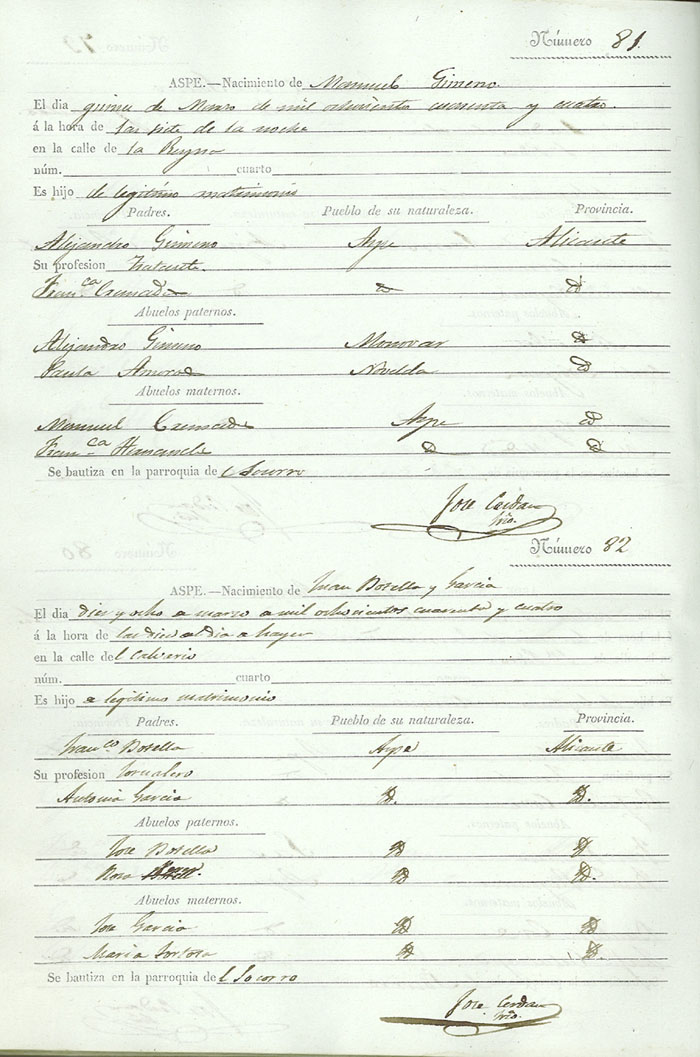 Número 81.
ASPE.—Nacimiento de Manuel Gimeno.
El dia quinse de Marzo de mil ochosiento cuarenta y cuatro.
á la hora de las siete de la noche
en la calle de la Reyna
núm. cuarto
Es hijo de legitimo matrimonio
Padres. Pueblo de su naturaleza. Provincia.
Alejandro Gimeno Aspe Alicante
Su profesion Tratante.
Fran.ca Cremade
Abuelos paternos.
Alejandro Gimeno Monovar
Paula Amoros Novelda
Abuelos maternos.
Manuel Cremade Aspe
Fran.ca
Se bautiza en la parroquia del Socorro
Jose Cerdan
Srio.
Número 82
ASPE.—Nacimiento de Botella y Garcia
El dia dies y ocho a marzo a mil ochocientos cuarenta y cuatro
á la hora de las dies al dia a hayer
en la calle del Calverio
núm. cuarto
Es hijo a legitimo matrimonio
Padres. Pueblo de su naturaleza. Provincia.
Fran.co Botella Aspe Alicante
Su profesion Jornalero
Antonia Garcia
Abuelos paternos.
Jose Botella
Rosa
Abuelos maternos.
Jose Garcia
Maria Tortosa
Se bautiza en la parroquia del Socorro
Jose Cerdan
Srio.